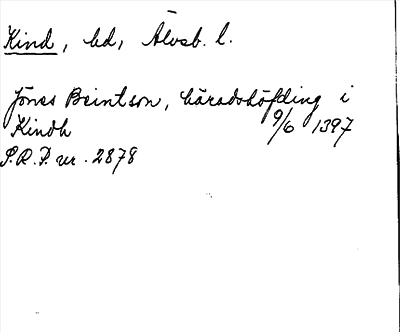 Kind, hd, Älvsb. l.
Jönes Beintson, häradshöfding i
Kindh 9/6 1397
S.R.P. nr. 2878